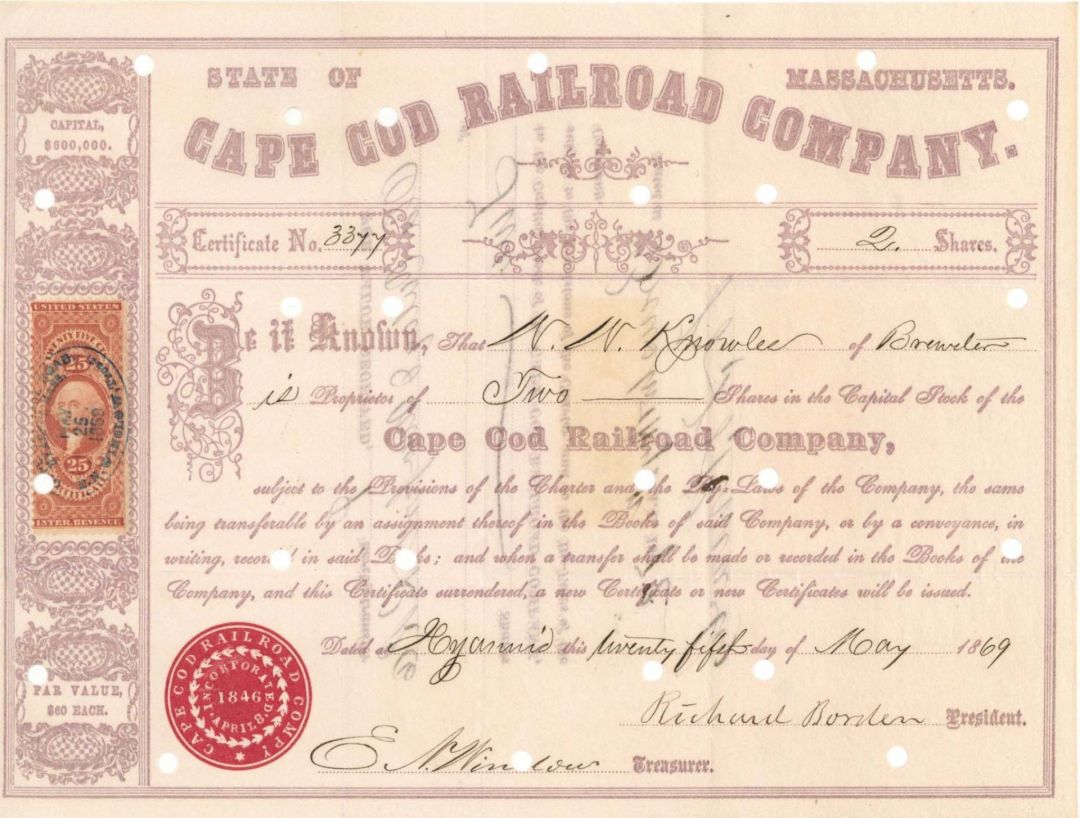 STATE OF MASSACHUSETTS.
CAPE COD RAILROAD COMPANY.
CAPITAL,
$600,000.
Certificate No. 3377
2. Shares.
Be it Known, That N. N. Knowles of Brewster
is Proprietor of Two Shares in the Capital Stock of the
Cape Cod Railroad Company,
subject to the Provisions of the Charter and the By-Laws of the Company, the same
being transferable by an assignment thereof in the Books of said Company, or by a conveyance, in
writing, recorded in said Books; and when a transfer shall be made or recorded in the Books of the
Company, and this Certificate surrendered, a new Certificate or new Certificates will be issued.
Dated at Hyannis this twenty fifth day of May 1869
Richard Borden President.
E. N. Winslow Treasurer.
UNITED STATES
TWENTY FIVE
25
25
CERTIFICATE
INTER. REVENUE
MAY
25
1869
PAR VALUE,
$60 EACH.
CAPE COD RAILROAD COMPY
INCORPORATED
1846
APRIL 8.